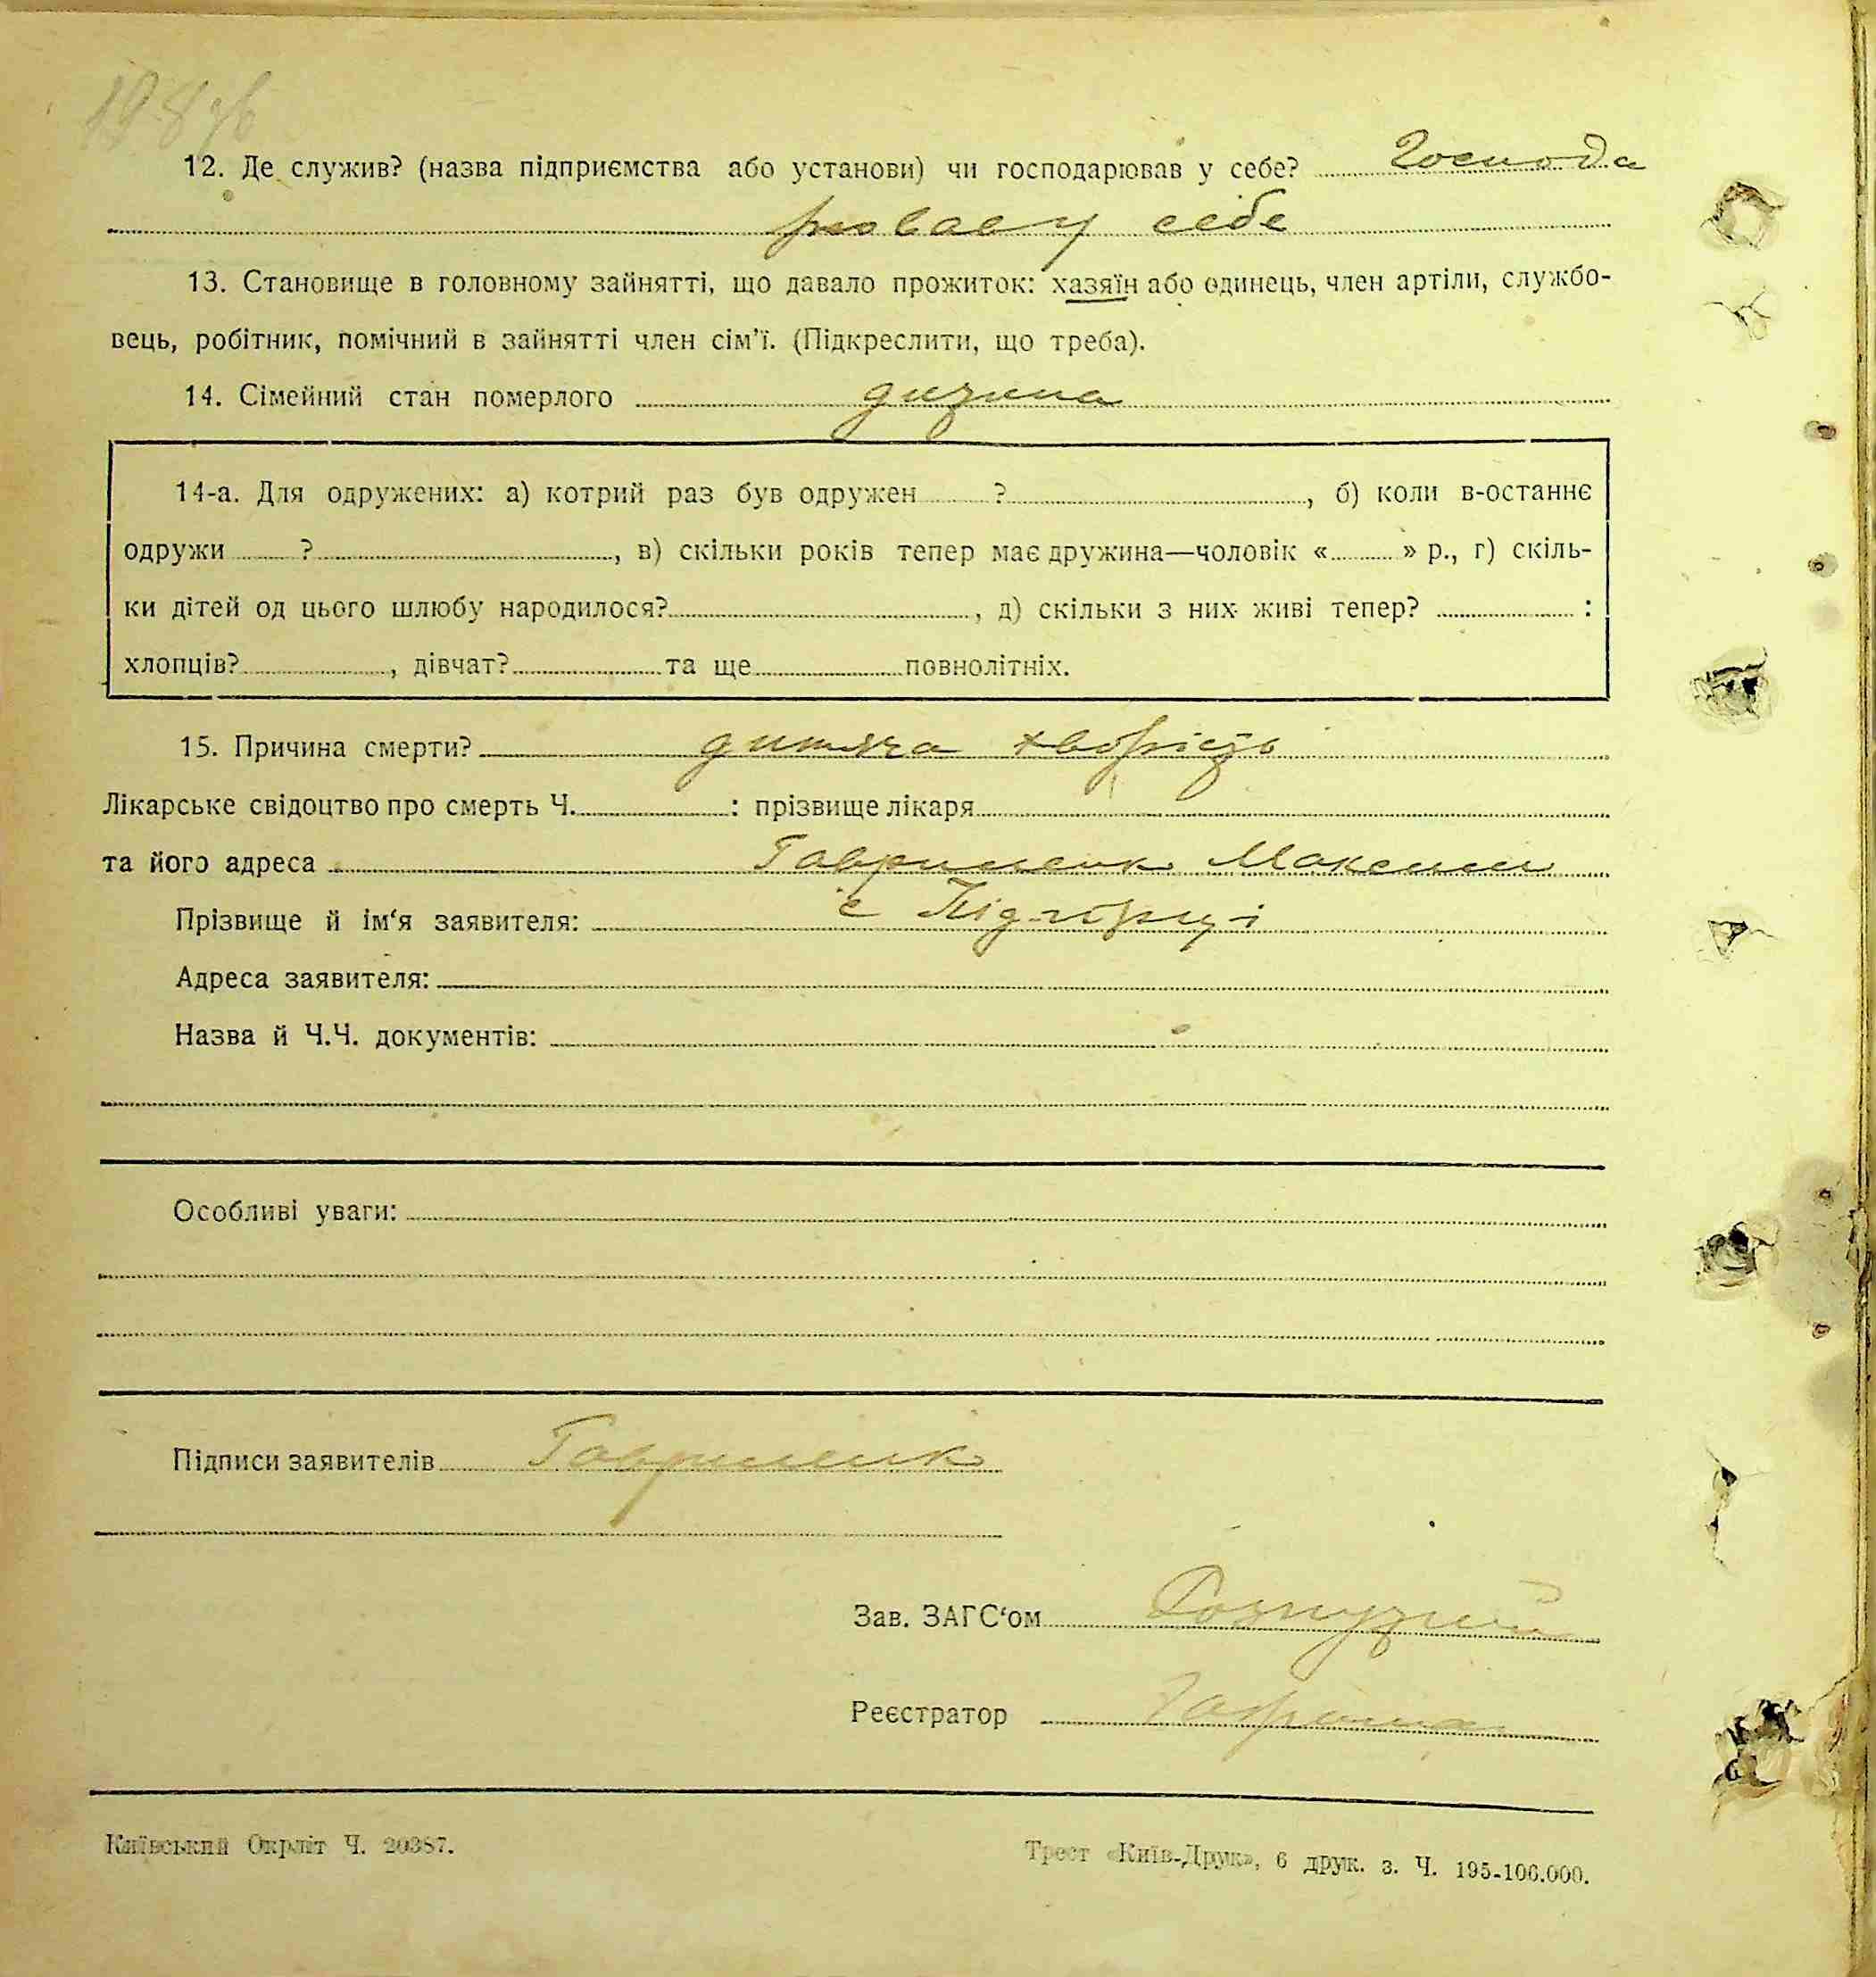 198 зв
12. Де служив? (назва підприємства або установи) чи господарював у себе? Господа
рював у себе
13. Становище в головному зайнятті, що давало прожиток: хазяїн або одинець, член артіли, службо-
вець, робітник, помічний в зайнятті член сім'ї. (Підкреслити, що треба).
14. Сімейний стан померлого дитина
14-а. Для одружених: а) котрий раз був одружен ? , б) коли в-останнє
одружи ? , в) скільки років тепер має дружина—чоловік « » р., г) скіль-
ки дітей од цього шлюбу народилося? , д) скільки з них живі тепер? :
хлопців? , дівчат? та ще повнолітніх.
15. Причина смерти? дитяча хворість
Лікарське свідоцтво про смерть Ч. : прізвище лікаря
та його адреса Гавриленк Максим
Прізвище й ім'я заявителя: с Підгірці
Адреса заявителя:
Назва й Ч.Ч. документів:
Особливі уваги:
Підписи заявителів Гавриленк
Зав. ЗАГС'ом
Реєстратор
Київський Окрліт Ч. 20387.
Трест «Київ-Друк», 6 друк. з. Ч. 195-100.000.